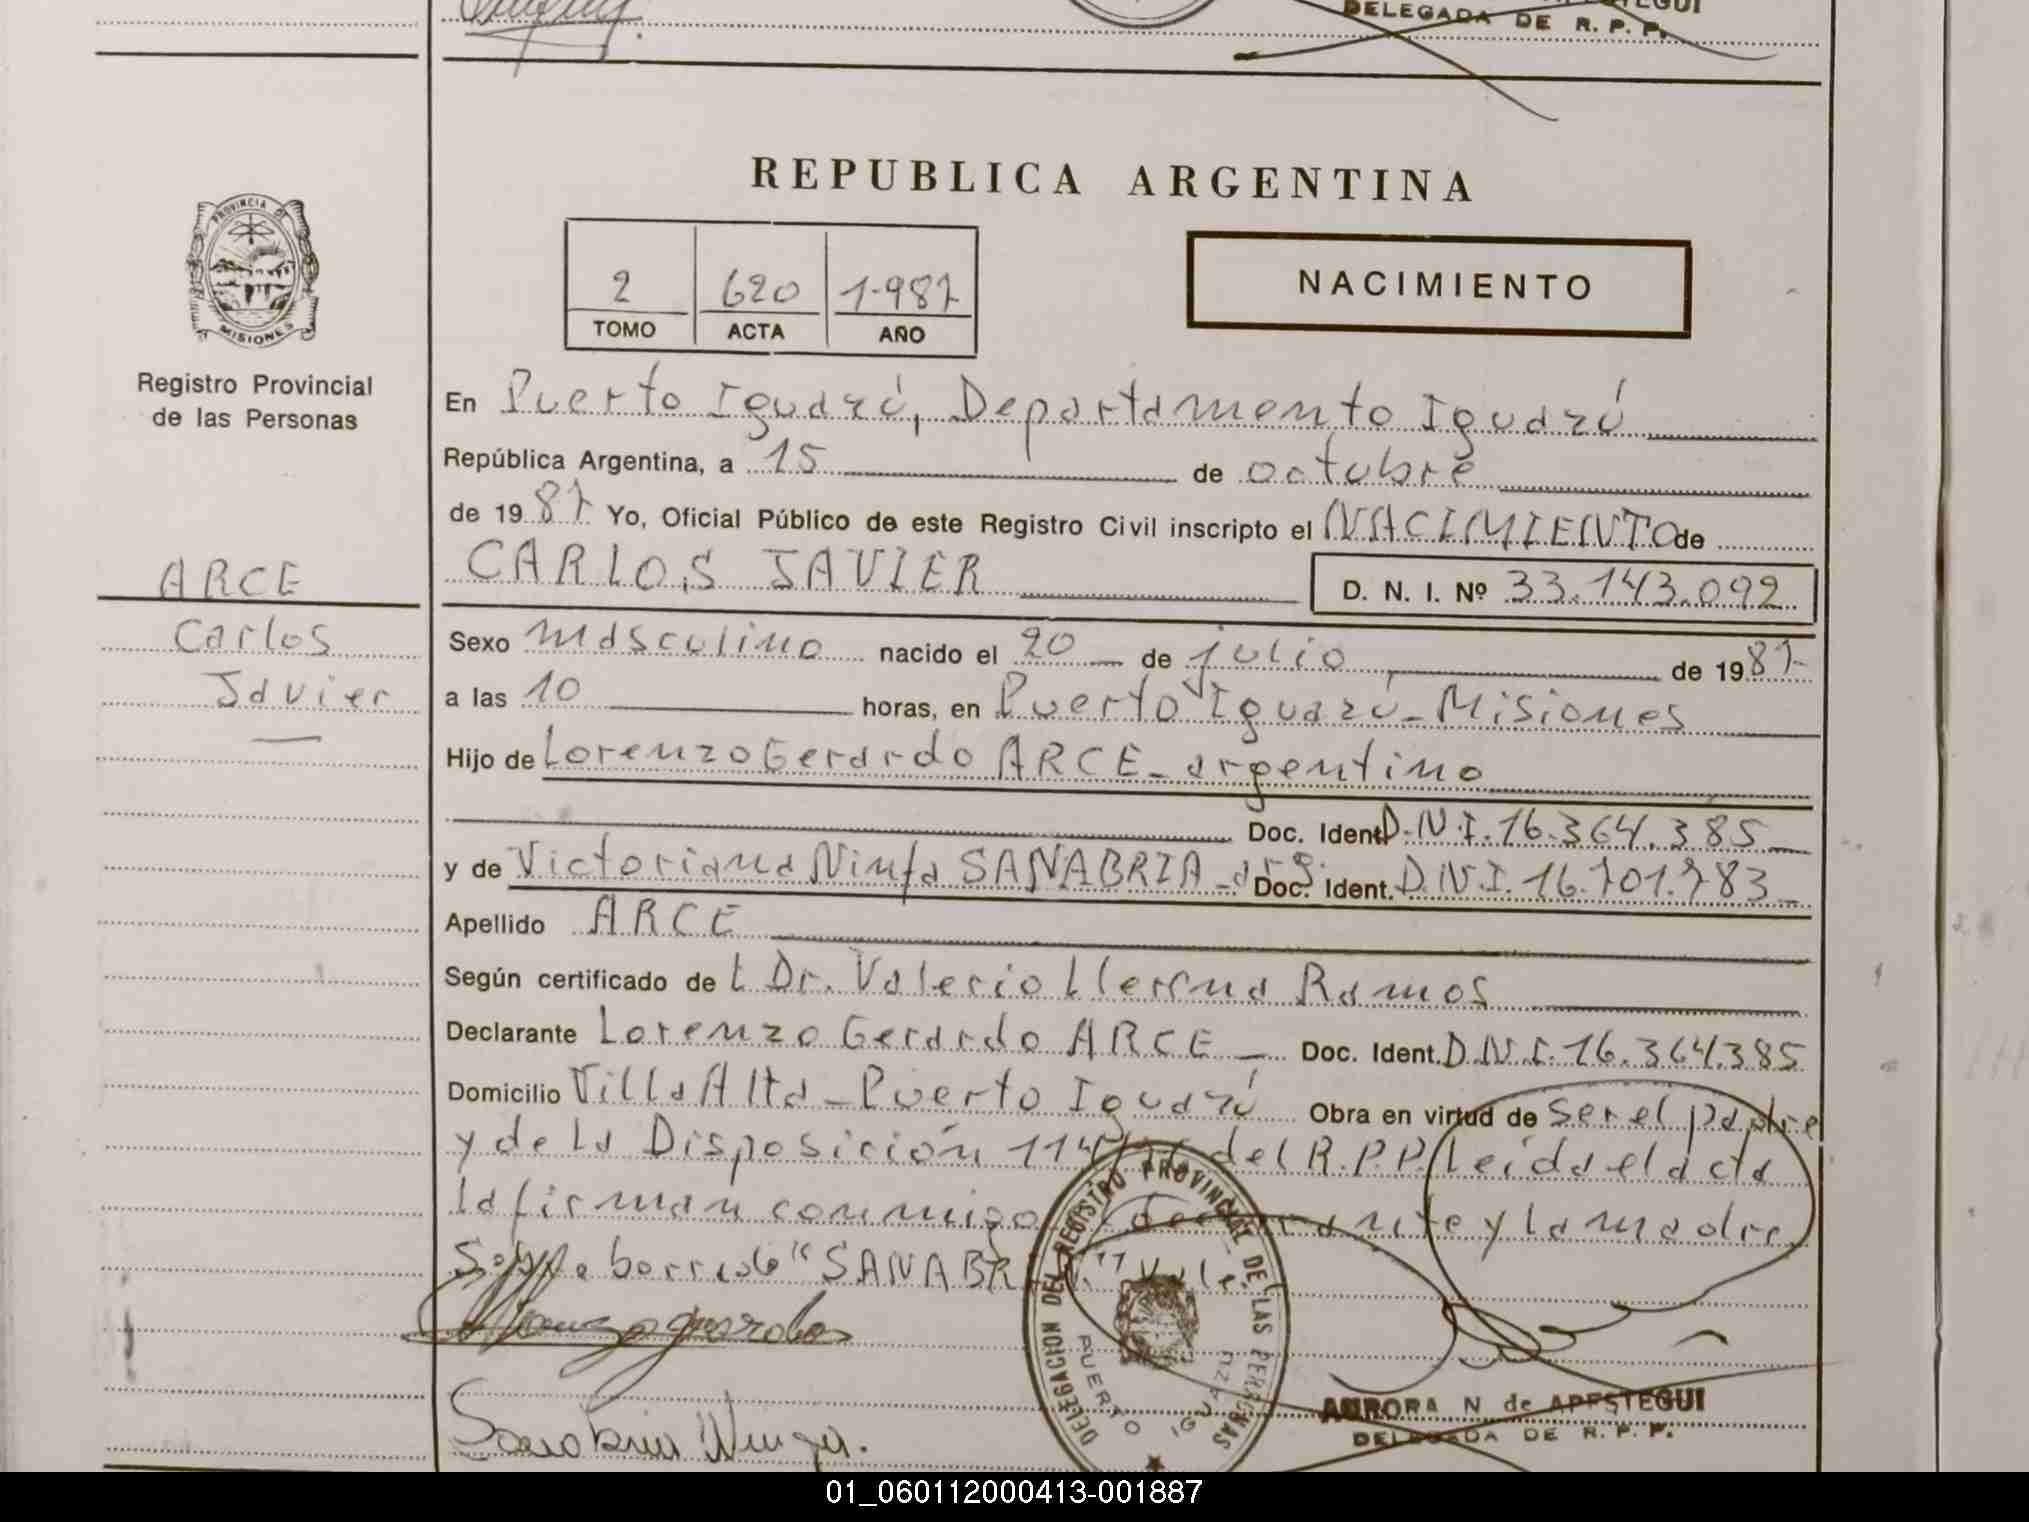 DELEGADA DE R. P. P.
REPUBLICA ARGENTINA
PROVINCIA DE
MISIONES
Registro Provincial
de las Personas
2 620 1.987
TOMO ACTA AÑO
NACIMIENTO
En Puerto Iguazú, Departamento Iguazú
República Argentina, a 15 de octubre
de 1987 Yo, Oficial Público de este Registro Civil inscripto el NACIMIENTO de
CARLOS JAVIER D. N. I. Nº 33.143.092
ARCE
Carlos
Javier
Sexo masculino nacido el 20 de julio de 1987
a las 10 horas, en Puerto Iguazú - Misiones
Hijo de Lorenzo Gerardo ARCE - argentino
Doc. Ident. D.N.I. 16.364.385
y de Victoriana Ninfa SANABRIA - arg. Doc. Ident. D.N.I. 16.701.783
Apellido ARCE
Según certificado del Dr. Valerio Llerena Ramos
Declarante Lorenzo Gerardo ARCE - Doc. Ident. D.N.I. 16.364.385
Domicilio Villa Alta - Puerto Iguazú Obra en virtud de ser el padre
y de la Disposición del R.P.P. Leída el acta
la firman conmigo declarante y la madre
borrado "SANABRIA" Vale
DELEGACION DEL REGISTRO PROVINCIAL DE LAS PERSONAS
PUERTO IGUAZU
AURORA N de APESTEGUI
DELEGADA DE R. P. P.
Sanabria Ninfa.
01_060112000413-001887